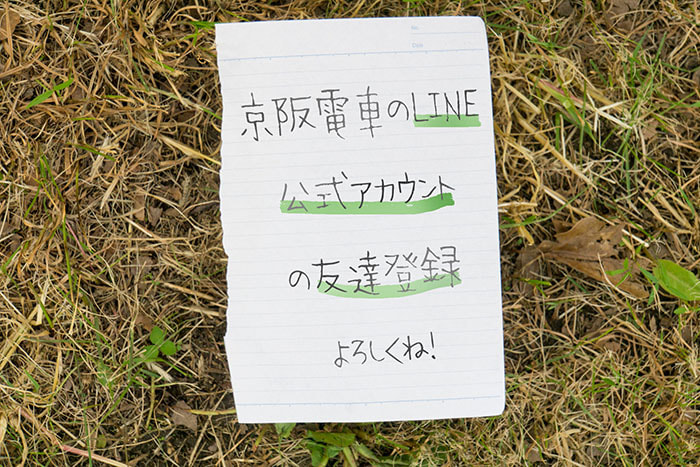 京阪電車のLINE
公式アカウント
の友達登録
よろしくね!